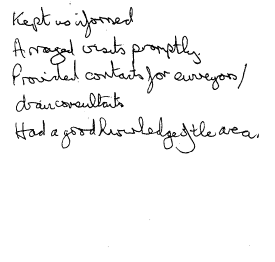 Kept us informed
Arranged visits promptly.
Provided contacts for surveyors/
drain consultants
Had a good knowledge of the area.